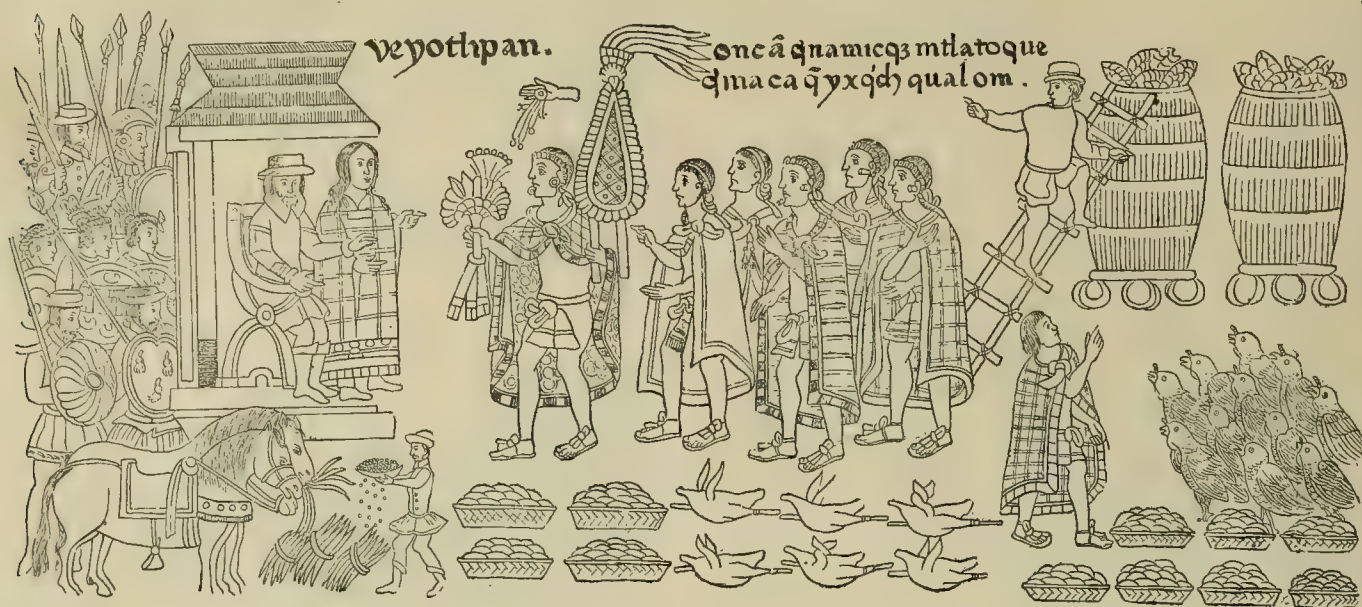 veyotlipan.
oncā q̄namicqȝ mtlatoque
q̄maca q̄ yxq̇ch qualom.